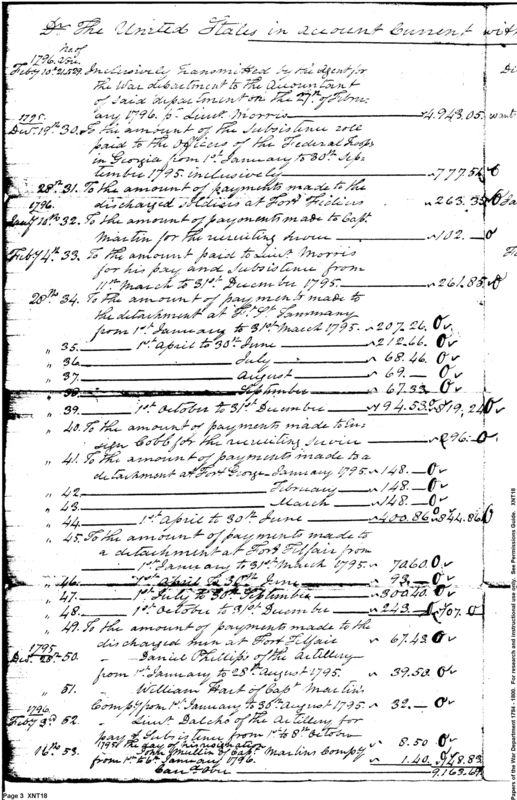 Dr. The United States in account Current with
No. of
1796. Vou.
Feby 10th 21,529. Inclusively transmitted by the Agent for
the War department to the Accountant
of said department on the 27th of Febru-
ary 1796. p. Lieut Morris 4.943.05.
1795.
Decr. 19th 30. To the amount of the Subsistence role
paid to the Officers of the Federal troops
in Georgia from 1st January to 30th Sep-
tember 1795 inclusively 777.56
28th 31. To the amount of payments made to the
discharged soldiers at Fort Fidius 263.35
1796.
Jany 10th 32. To the amount of payments made to Capt
Martin for the recruiting service 102.
Feby 4th 33. To the amount paid to Lieut Morris
for his pay and subsistence from
11th March to 31st December 1795. 261.85
28th 34. To the amount of payments made to
the detachment at Ft. St. Tammany
from 1st January to 31st March 1795. 207.26.
" 35. 1st April to 30th June 212.66.
" 36. July 68.46.
" 37. August 69.
" 38. September 67.33.
" 39. 1st October to 31st December 194.53 819.24
" 40. To the amount of payments made to En-
sign Cobb for the recruiting service 96.
" 41. To the amount of payments made to a
detachment at Fort George January 1795. 148.
" 42 February 148.
" 43 March 148.
" 44 1st April to 30th June 400.86 844.86
" 45. To the amount of payments made to
a detachment at Fort Telfair from
1st January to 31st March 1795. 70.60
" 46. 1st April to 30th June 93.
" 47. 1st July to 30th September 300.40.
" 48. 1st October to 31st December 243. 707.
" 49. To the amount of payments made to the
discharged men at Fort Telfair 67.43
1795
Decr. 28th 50. " Daniel Phillips of the Artillery
from 1st January to 25th August 1795. 39.50.
" 51. " William Hart of Capt Martin's
Compy from 1st January to 30th August 1795. 32.
1796.
Feby 3d 52. " Lieut Dalcho of the Artillery for
pay & Subsistence from 1st to 8th October
1795 the day of his resignation 8.50
16th 53. " John Mullin of Capt. Martins Compy
from 1st to 6th January 1796. 1.40. 148.83
Card Over 9.163.64
Page 3 XNT18
Papers of the War Department 1784 - 1800. For research and instructional use only. See Permissions Guide. XNT18